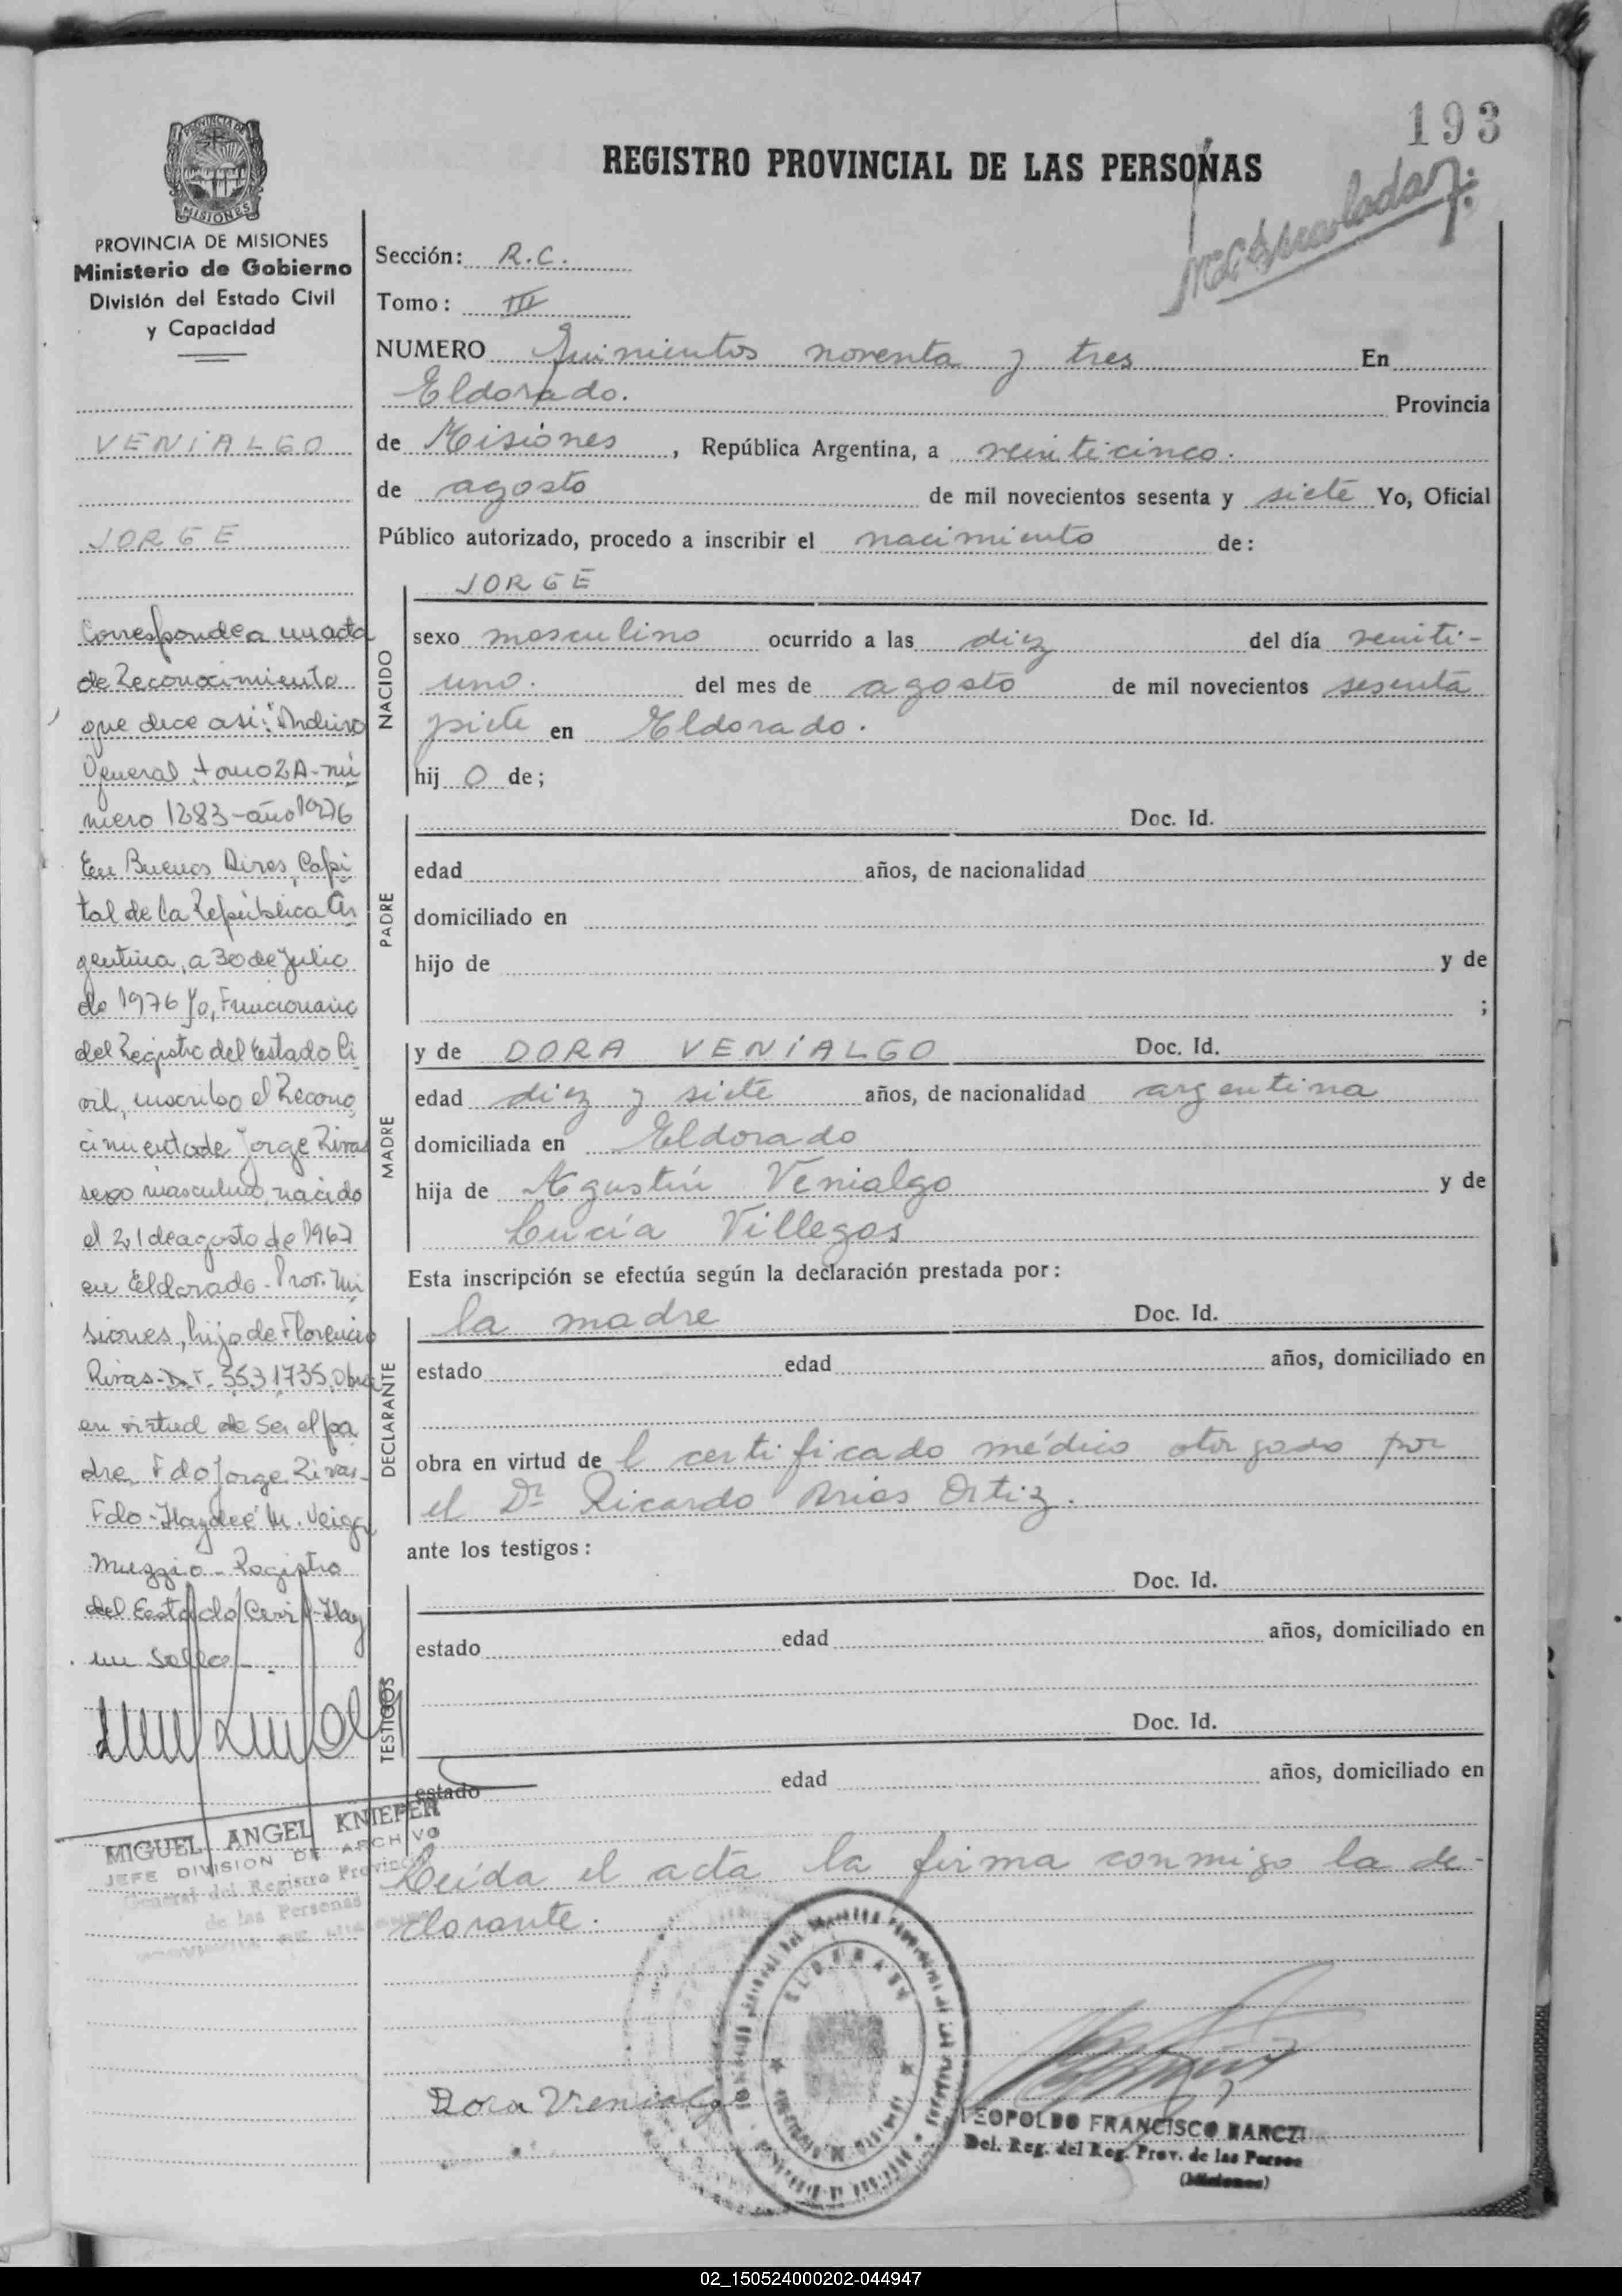 193
REGISTRO PROVINCIAL DE LAS PERSONAS
PROVINCIA DE
MISIONES
PROVINCIA DE MISIONES
Ministerio de Gobierno
División del Estado Civil
y Capacidad
VENIALGO
JORGE
Corresponde a un acta
de Reconocimiento
que dice asi: "Archivo
General, tomo 2A - nú
mero 1283 - año 1976
En Buenos Aires, Capi
tal de la República Ar
gentina, a 30 de Julio
de 1976 Yo, Funcionario
del Registro del Estado Ci
vil, inscribo el Recono
cimiento de Jorge Rivas
sexo masculino, nacido
el 21 de agosto de 1967
en Eldorado - Prov. Mi
siones, hijo de Florencio
Rivas - 5531735 Obra
en virtud de ser el pa
dre, Fdo Jorge Rivas -
Fdo - Haydeé M. Veiga
Muzzio - Registro
del Estado Civil - Hay
un sello - .
MIGUEL ANGEL KNIEPER
JEFE DIVISION DE ARCHIVO
General del Registro Provincial
de las Personas
Sección: R.C.
Tomo: III
NUMERO Quinientos noventa y tres En
Eldorado. Provincia
de Misiones, República Argentina, a veinticinco.
de agosto de mil novecientos sesenta y siete Yo, Oficial
Público autorizado, procedo a inscribir el nacimiento de:
JORGE
NACIDO
sexo masculino ocurrido a las diez del día veinti-
uno. del mes de agosto de mil novecientos sesenta
siete en Eldorado.
hij o de;
PADRE
Doc. Id.
edad años, de nacionalidad
domiciliado en
hijo de y de
;
MADRE
y de DORA VENIALGO Doc. Id.
edad diez y siete años, de nacionalidad argentina
domiciliada en Eldorado
hija de Agustín Venialgo y de
Lucía Villegas
Esta inscripción se efectúa según la declaración prestada por:
DECLARANTE
la madre Doc. Id.
estado edad años, domiciliado en
obra en virtud de l certificado médico otorgado por
el Dr Ricardo Arias Ortiz.
ante los testigos:
TESTIGOS
Doc. Id.
estado edad años, domiciliado en
Doc. Id.
estado edad años, domiciliado en
Leída el acta la firma conmigo la de-
clarante.
ELDORADO
Dora Venialgo
LEOPOLDO FRANCISCO
Del. Reg. del Reg. Prov. de las Person
(Misiones)
02_150524000202-044947